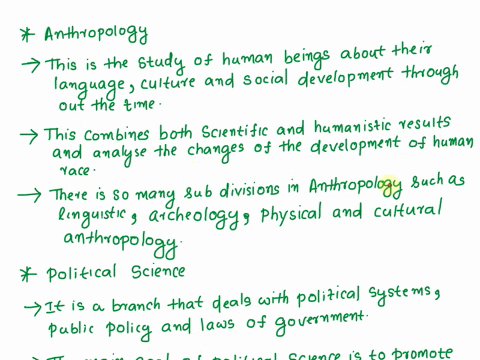 * Anthropology
→ This is the study of human beings about their
language, culture and social development through
out the time.
→ This combines both scientific and humanistic results
and analyse the changes of the development of human
race.
→ There is so many sub divisions in Anthropology such as
linguistic, archeology, physical and cultural
anthropology.
* Political Science
→ It is a branch that deals with political systems,
public policy and laws of government.
→ The main goal of political science is to promote